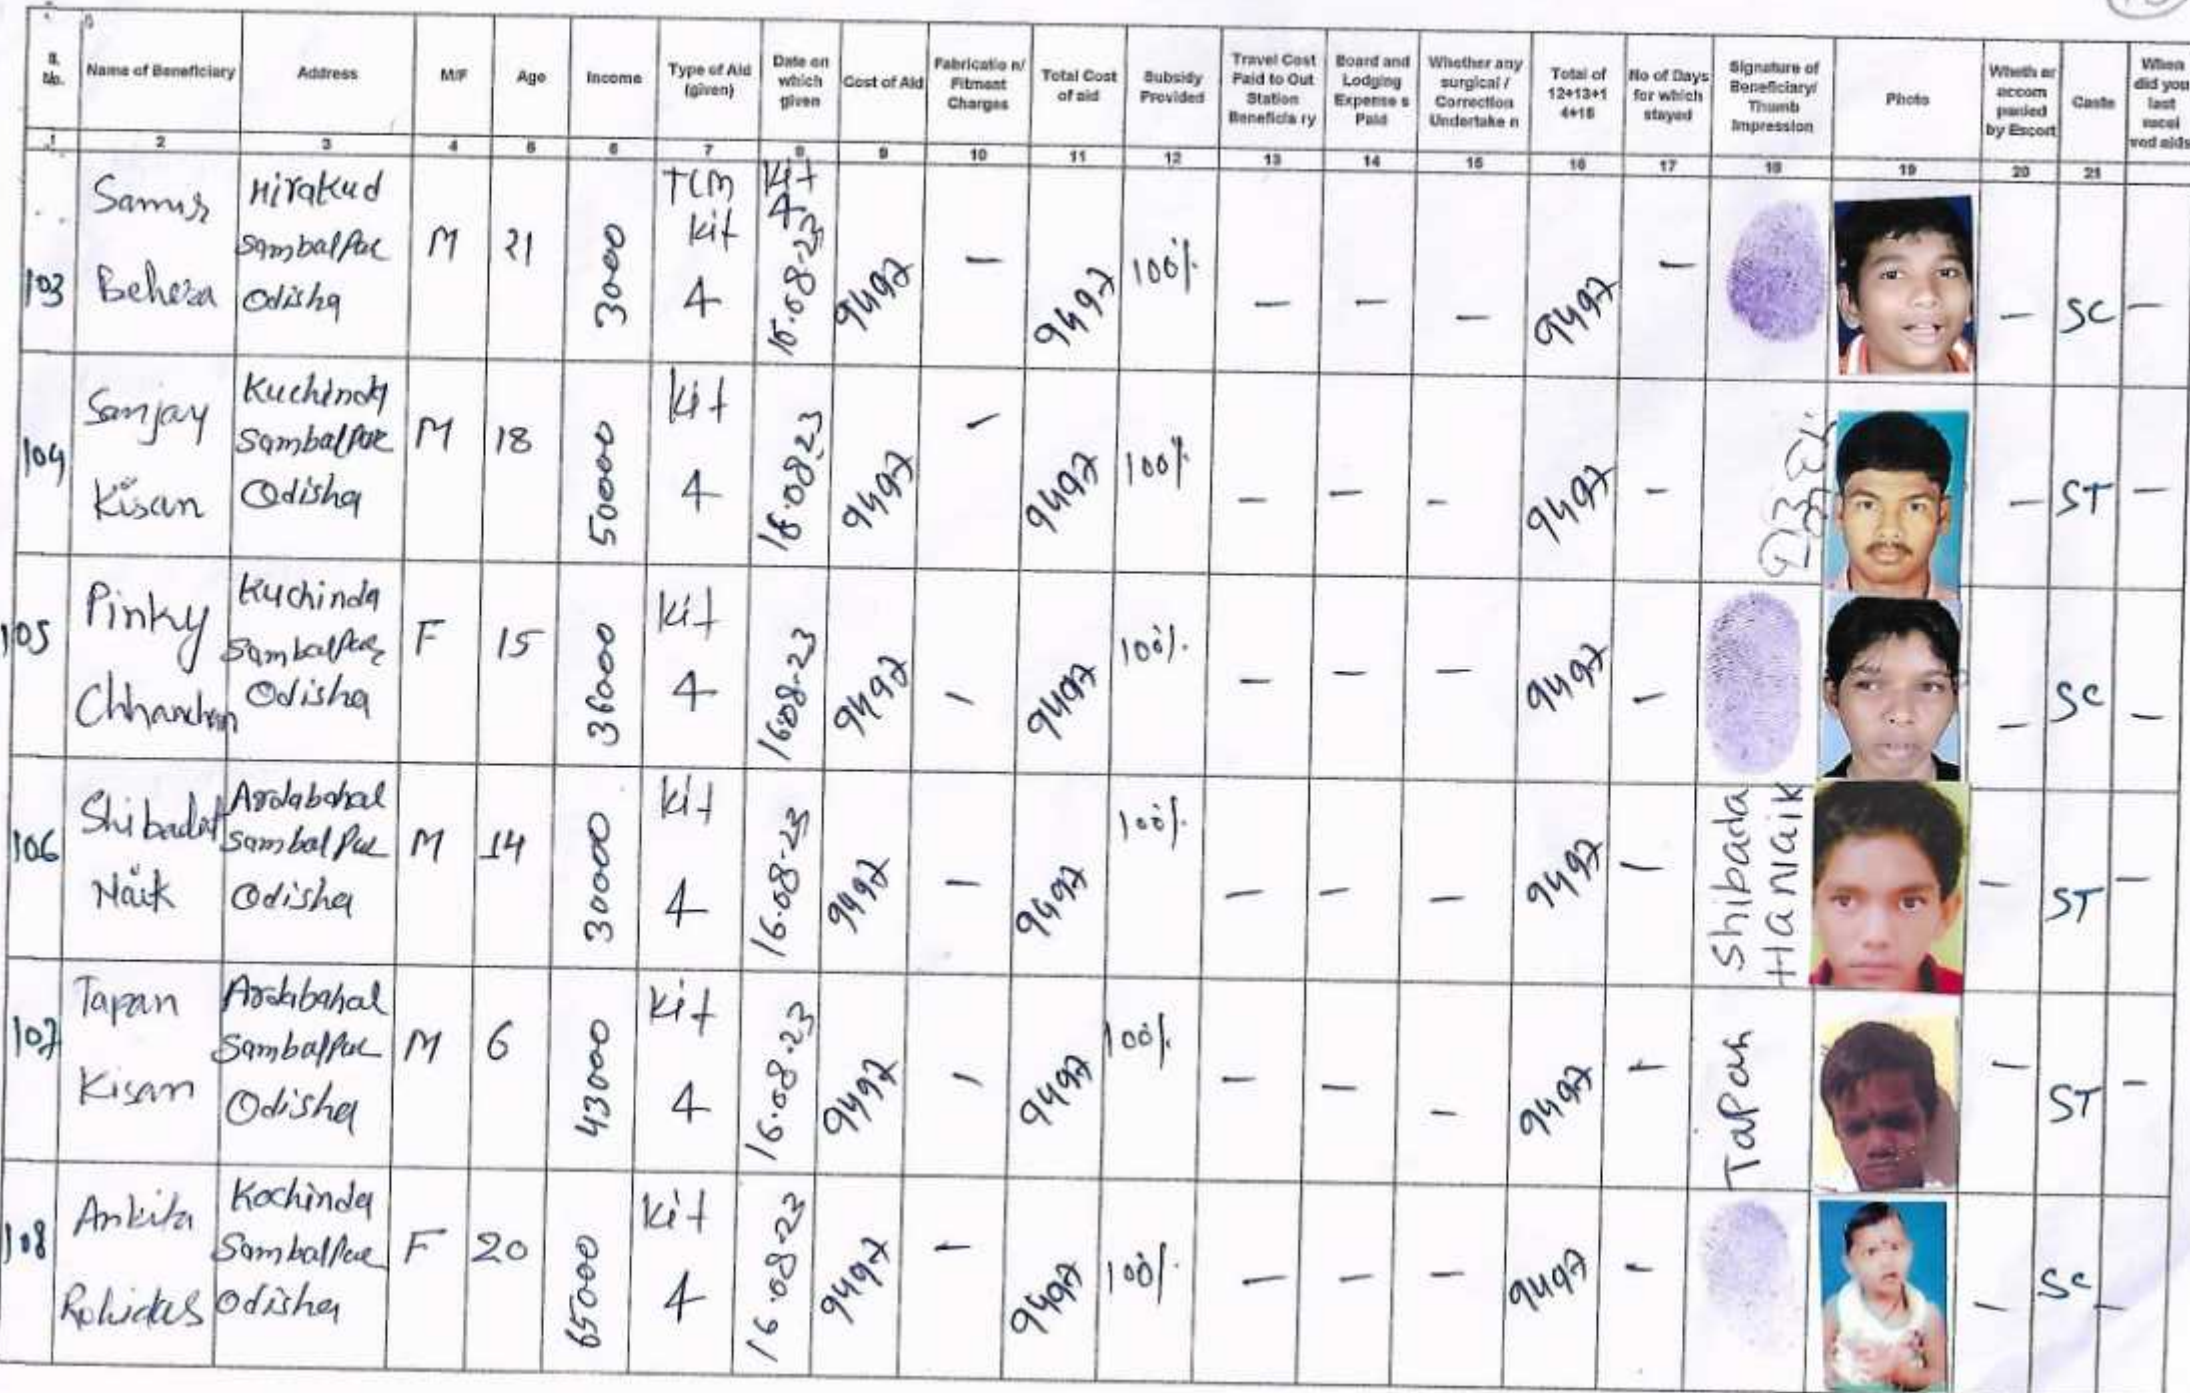 S. No. Name of Beneficiary Address M/F Age Income Type of Aid (given) Date on which given Cost of Aid Fabricatio n/ Fitment Charges Total Cost of aid Subsidy Provided Travel Cost Paid to Out Station Beneficia ry Board and Lodging Expense s Paid Whether any surgical / Correction Undertake n Total of 12+13+1 4+15 No of Days for which stayed Signature of Beneficiary/ Thumb Impression Photo Wheth er accom panied by Escort Caste When did you last recei ved aids
1 2 3 4 5 6 7 8 9 10 11 12 13 14 15 16 17 18 19 20 21
103 Samir Behera Hirakud Sambalpur Odisha M 21 TLM Kit 4 Kit 4 9497 — 9497 100% — — — 9497 — — SC —
104 Sanjay Kisan Kuchinda Sambalpur Odisha M 18 50000 Kit 4 16.08.23 9497 — 9497 100% — — — 9497 — — ST —
105 Pinky Kuchinda Sambalpur Odisha F 15 36000 Kit 4 16.08.23 9497 — 9497 100% — — — 9497 — — SC —
106 Naik Ardabahal Sambalpur Odisha M 14 30000 Kit 4 16.08.23 9497 — 9497 100% — — — 9497 — Shibada Ha Naik — ST —
107 Tapan Kisan Ardabahal Sambalpur Odisha M 6 43000 Kit 4 16.08.23 9497 — 9497 100% — — — 9497 — Tapan — ST —
108 Ankita Rohidas Kochinda Sambalpur Odisha F 20 65000 Kit 4 16.08.23 9497 — 9497 100% — — — 9497 — — SC —